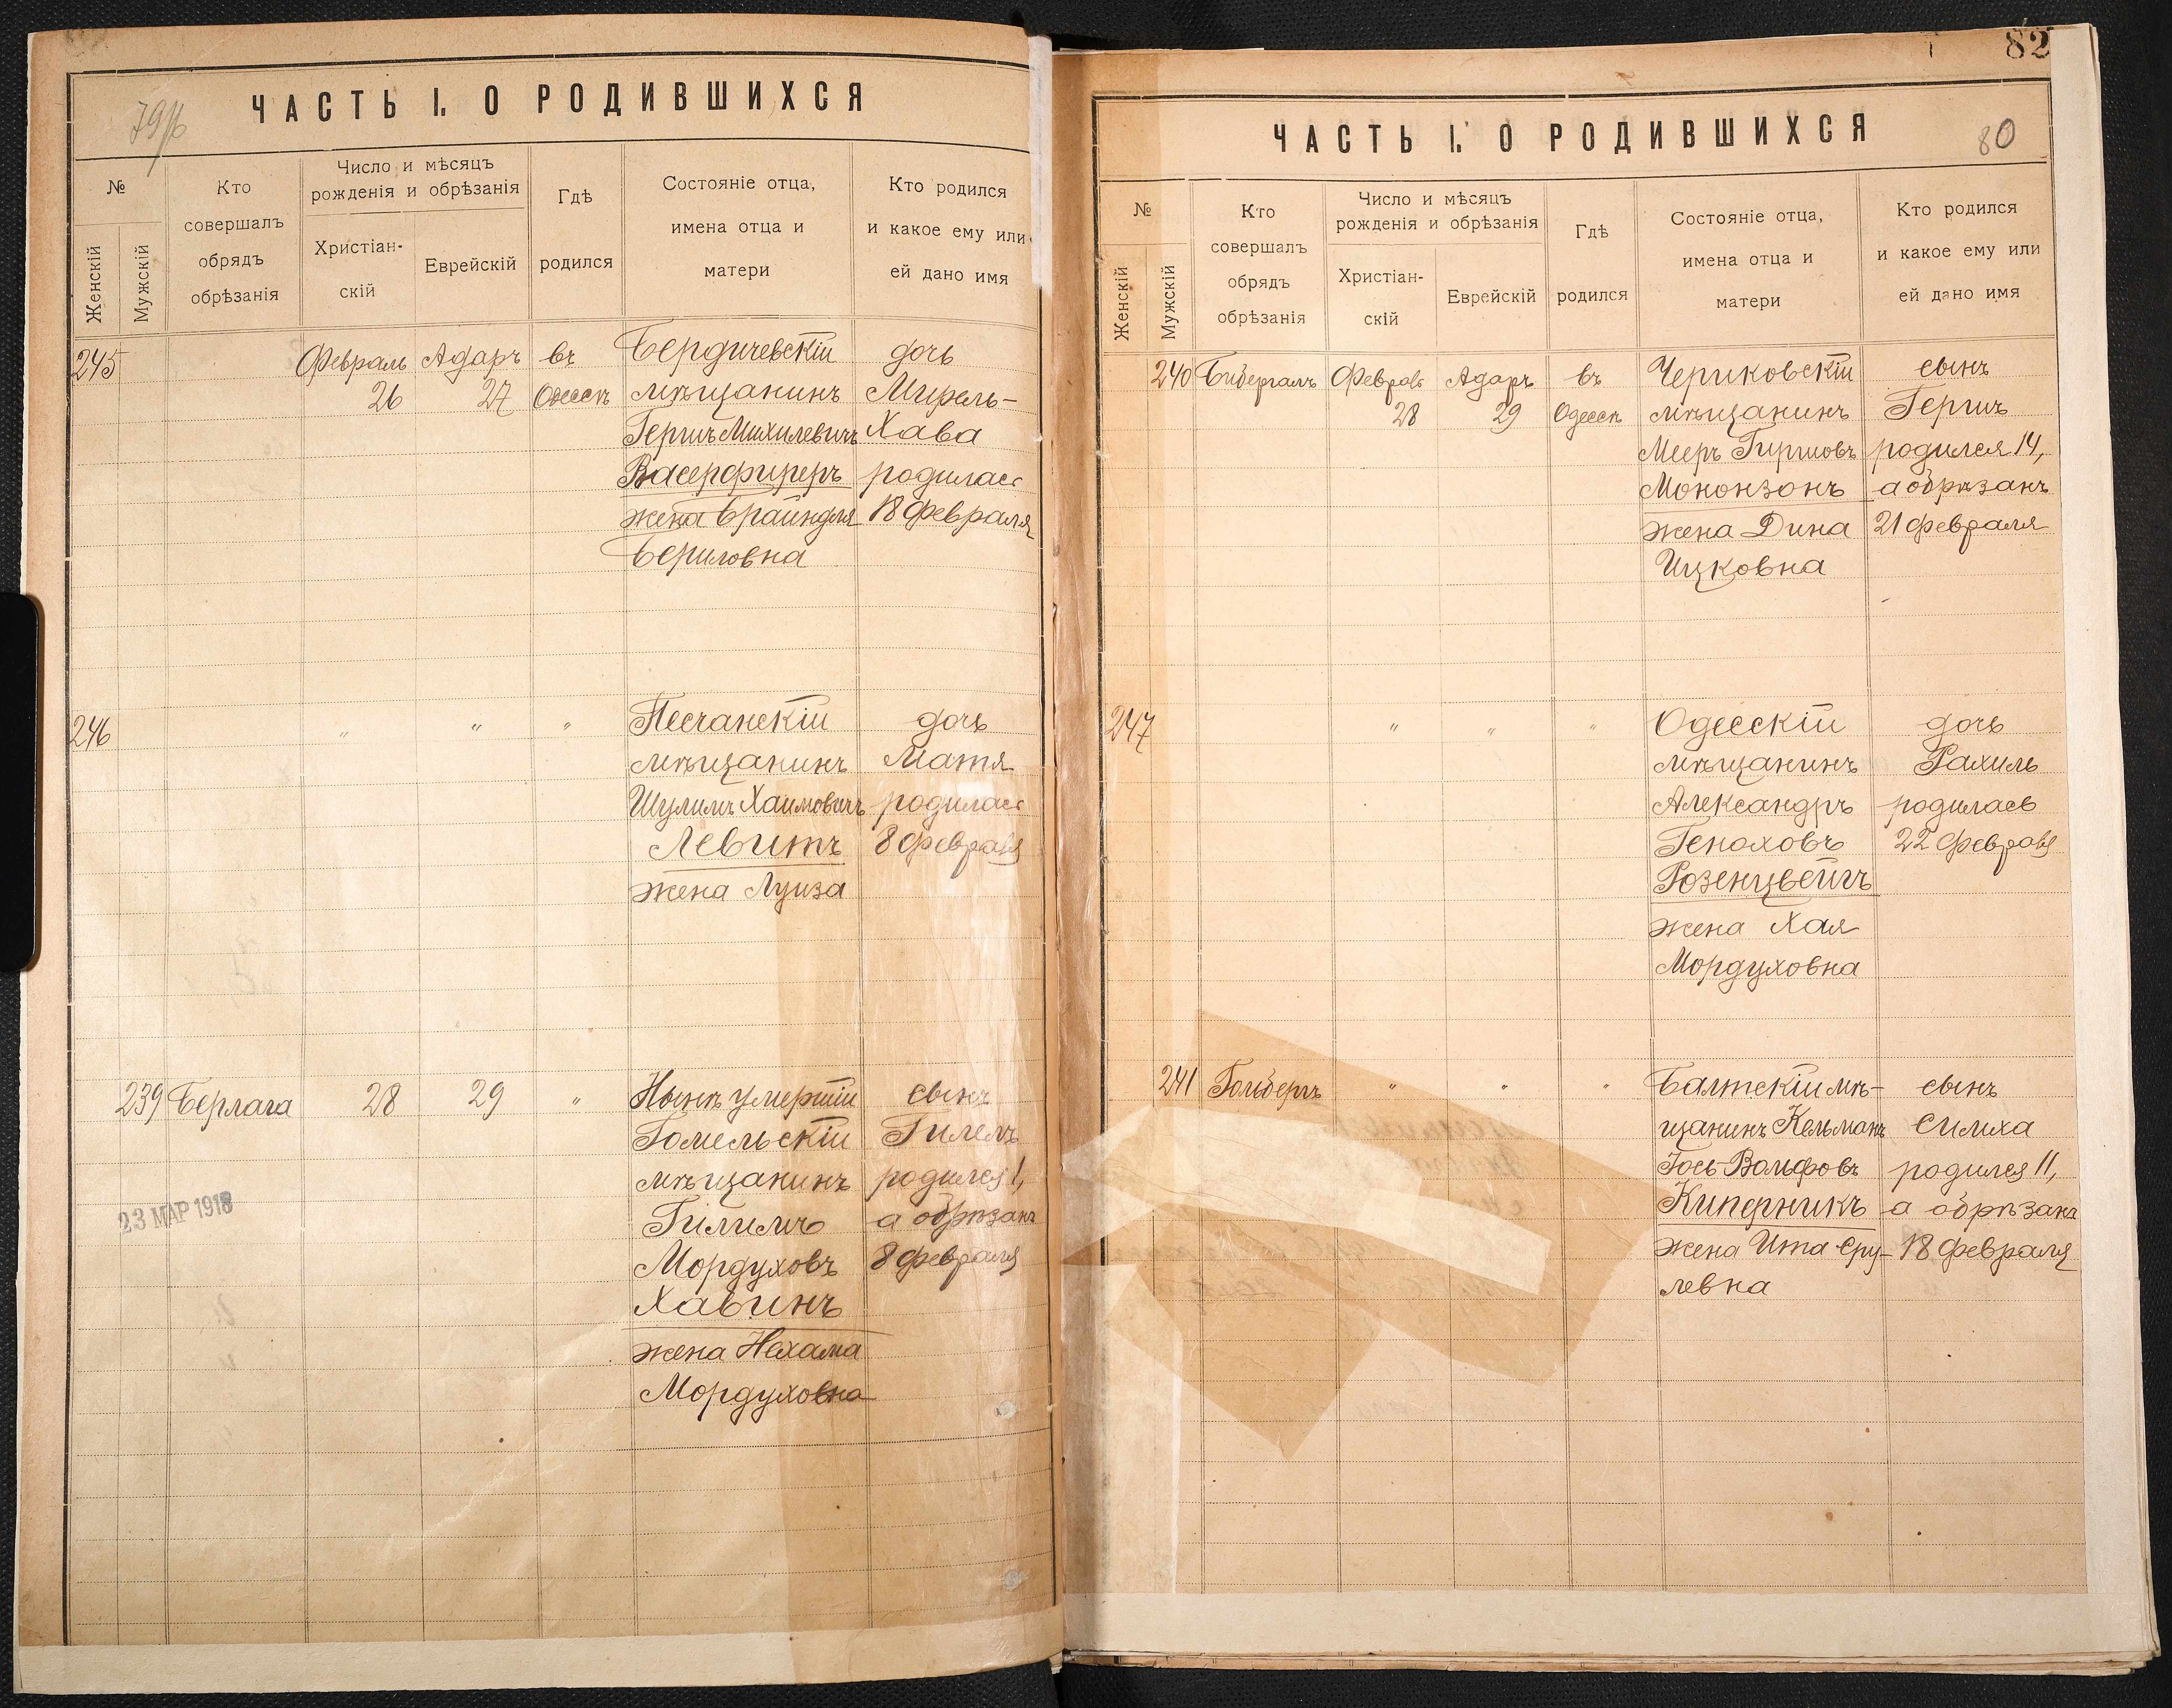 79об
ЧАСТЬ I. О РОДИВШИХСЯ
№
Женскій
Мужскій
Кто
совершалъ
обрядъ
обрѣзанія
Число и мѣсяцъ
рожденія и обрѣзанія
Христіан-
скій
Еврейскій
Гдѣ
родился
Состояніе отца,
имена отца и
матери
Кто родился
и какое ему или
ей дано имя
245
Февраль
26
Адаръ
27
въ
Одессѣ
Бердичевскій
мѣщанинъ
Гершъ Михилевичъ
Васерфиреръ
жена Брайндля
Бериловна
дочь
Мирель-
Хава
родилась
18 февраля
246
"
"
"
Песчанскій
мѣщанинъ
Шулимъ Хаимовичъ
Левитъ
жена Луиза
дочь
Матя
родилась
8 февраля
239
Берлага
28
29
"
Нынѣ умершій
Гомельскій
мѣщанинъ
Гилимъ
Мордуховъ
Хавинъ
жена Нехама
Мордуховна
сынъ
Гилелъ
родился 1,
а обрѣзанъ
8 февраля
23 МАР 1918
82
ЧАСТЬ I. О РОДИВШИХСЯ
80
№
Женскій
Мужскій
Кто
совершалъ
обрядъ
обрѣзанія
Число и мѣсяцъ
рожденія и обрѣзанія
Христіан-
скій
Еврейскій
Гдѣ
родился
Состояніе отца,
имена отца и
матери
Кто родился
и какое ему или
ей дано имя
240
Бибергалъ
Февраль
28
Адаръ
29
въ
Одессѣ
Чериковскій
мѣщанинъ
Мееръ Гиршовъ
Мононзонъ
жена Дина
Ицковна
сынъ
Гершъ
родился 14,
а обрѣзанъ
21 февраля
247
"
"
"
Одесскій
мѣщанинъ
Александръ
Геноховъ
Розенцвейгъ
жена Хая
Мордуховна
дочь
Рахиль
родилась
22 февраля
241
Гольбергъ
"
"
"
Балтскій мѣ-
щанинъ Кельманъ
Іось-Вольфовъ
Киперникъ
жена Ита Сру-
левна
сынъ
Симха
родился 11,
а обрѣзанъ
18 февраля